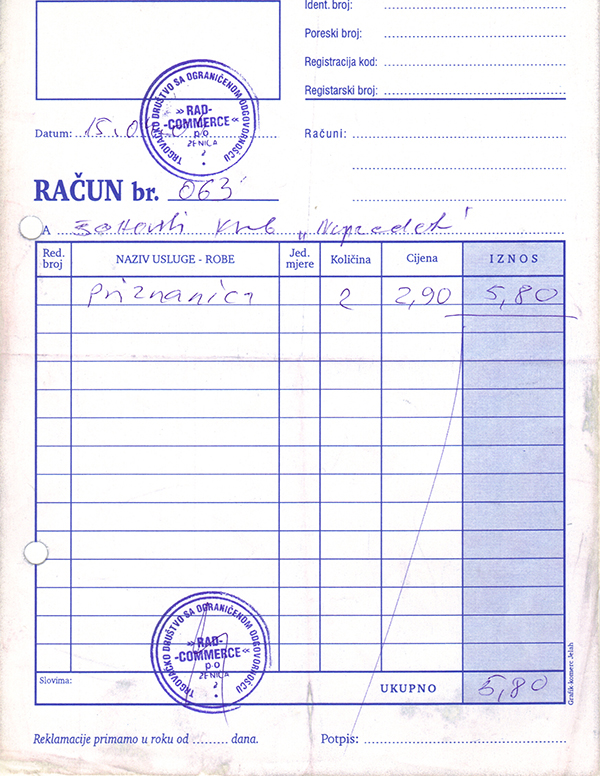 Ident. broj:
Poreski broj:
Registracija kod:
Registarski broj:
TRGOVAČKO DRUŠTVO SA OGRANIČENOM ODGOVORNOSCU
»RAD-
-COMMERCE«
p o
ZENICA
Datum: 15.0
Računi:
RAČUN br. 063
A Šahovski klub "Napredak"
Red. broj NAZIV USLUGE - ROBE Jed. mjere Količina Cijena IZNOS
Priznanica 2 2,90 5,80
TRGOVAČKO DRUŠTVO SA OGRANIČENOM ODGOVORNOSCU
»RAD-
-COMMERCE«
p o
ZENICA
Slovima:
UKUPNO 5,80
Grafik-komerc Jelah
Reklamacije primamo u roku od ......... dana. Potpis: